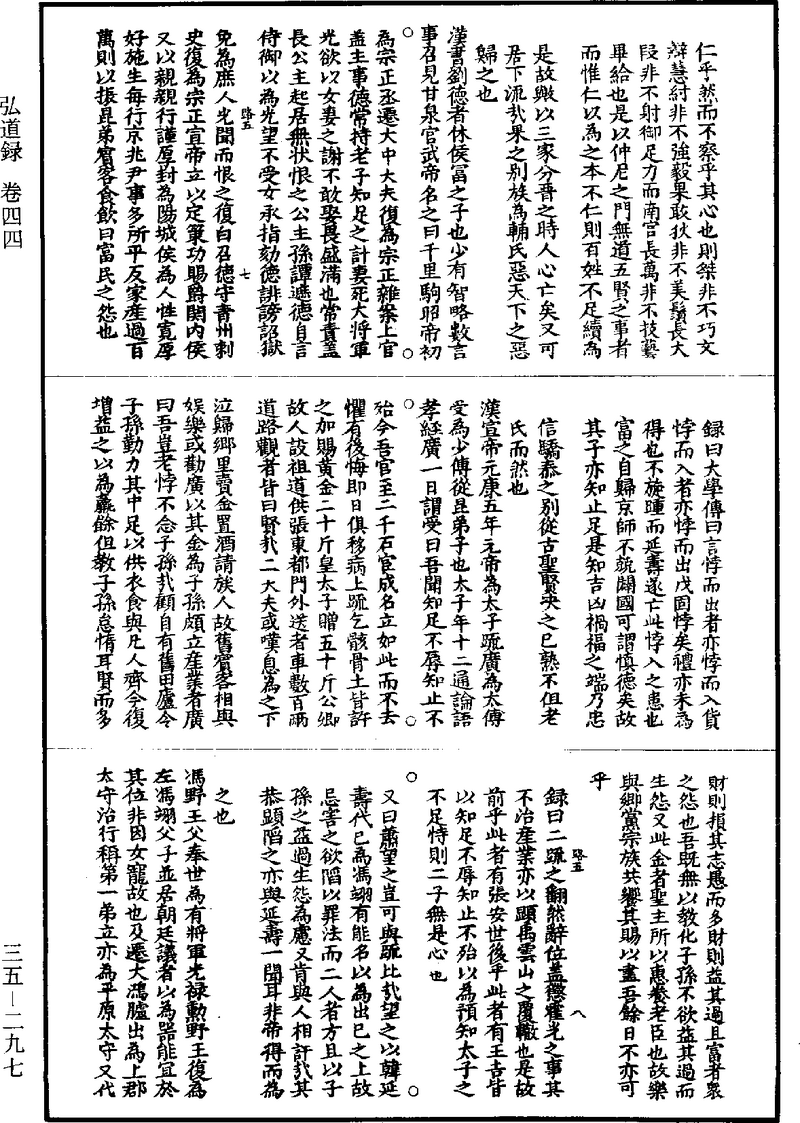 仁乎然而不察乎其心也則桀非不巧文
辯慧紂非不強毅果敢狄非不美鬚長大
段非不射御足力而南宮長萬非不技藝
畢給也是以仲尼之門無道五賢之事者
而惟仁以為之本不仁則百姓不足續為
是故緻以三家分晉之時人心亡矣又可
居下流哉果之別族為輔氏惡天下之惡
歸之也
漢書劉德者休侯冨之子也少有智略數言
事召見甘泉宮武帝名之曰千里駒昭帝初
為宗正丞遷大中大夫復為宗正雜案上官
盖主事德常持老子知足之計妻死大將軍
光欲以女妻之謝不敢娶畏盛滿也常責蓋
長公主起居無狀恨之公主孫譚遮德自言
侍御以為光望不受女承指劾德誹謗詔獄
路五
七
免為庶人光聞而恨之復白召德守青州刺
史復為宗正宣帝立以定策功賜爵関內侯
又以親親行謹厚封為陽城侯為人性寬厚
好施生每行京兆尹事多所平反家産過百
萬則以振昆弟賓客食飲曰富民之怨也
録曰大學傳曰言悖而出者亦悖而入貨
悖而入者亦悖而出戊固悖矣禮亦未為
得也不旋踵而延壽遂亡此悖入之患也
富之自歸京師不就闢國可謂慎德矣故
其子亦知止足是知吉凶禍福之端乃忠
信驕泰之別從古聖賢夬之已熟不但老
氏而然也
漢宣帝元康五年元帝為太子疏廣為太傅
受為少傅從昆弟子也太子年十二通論語
孝經廣一日謂受曰吾聞知足不辱知止不
殆今吾官至二千石宦成名立如此而不去
懼有後悔即日俱移病上疏乞骸骨上皆許
之加賜黃金二十斤皇太子贈五十斤公卿
故人設祖道供張東都門外送者車數百兩
道路觀者皆曰賢哉二大夫或嘆息為之下
泣歸郷里賣金置酒請族人故舊賓客相與
娛樂或勸廣以其金為子孫頗立産業者廣
曰吾豈老悖不念子孫哉顧自有舊田廬令
子孫勤力其中足以供衣食與凡人齊今復
增益之以為羸餘但教子孫怠惰耳賢而多
財則損其志愚而多財則益其過且富者衆
之怨也吾既無以教化子孫不欲益其過而
生怨又此金者聖主所以惠養老臣也故樂
與郷黨宗族共饗其賜以盡吾餘日不亦可
乎
録曰二疏之翻然辭位蓋懲霍光之事其
路五
八
不治産業亦以顯禹雲山之覆轍也是故
前乎此者有張安世後乎此者有王吉皆
以知足不辱知止不殆以為預知太子之
不足恃則二子無是心也
又曰蕭望之豈可與疏比哉望之以韓延
壽代已為馮翊有能名以為出已之上故
忌害之欲陷以罪法而二人者方且以子
孫之益過生怨為慮又肯與人相訐哉其
恭顯陷之亦與延壽一閒耳非帝得而為
之也
馮野王父奉世為右將軍光禄勲野王復為
左馮翊父子並居朝廷議者以為器能宜於
其位非因女寵故也及遷大鴻臚出為上郡
太守治行稱第一弟立亦為平原太守又代
弘道録 卷四四
三五—二九七